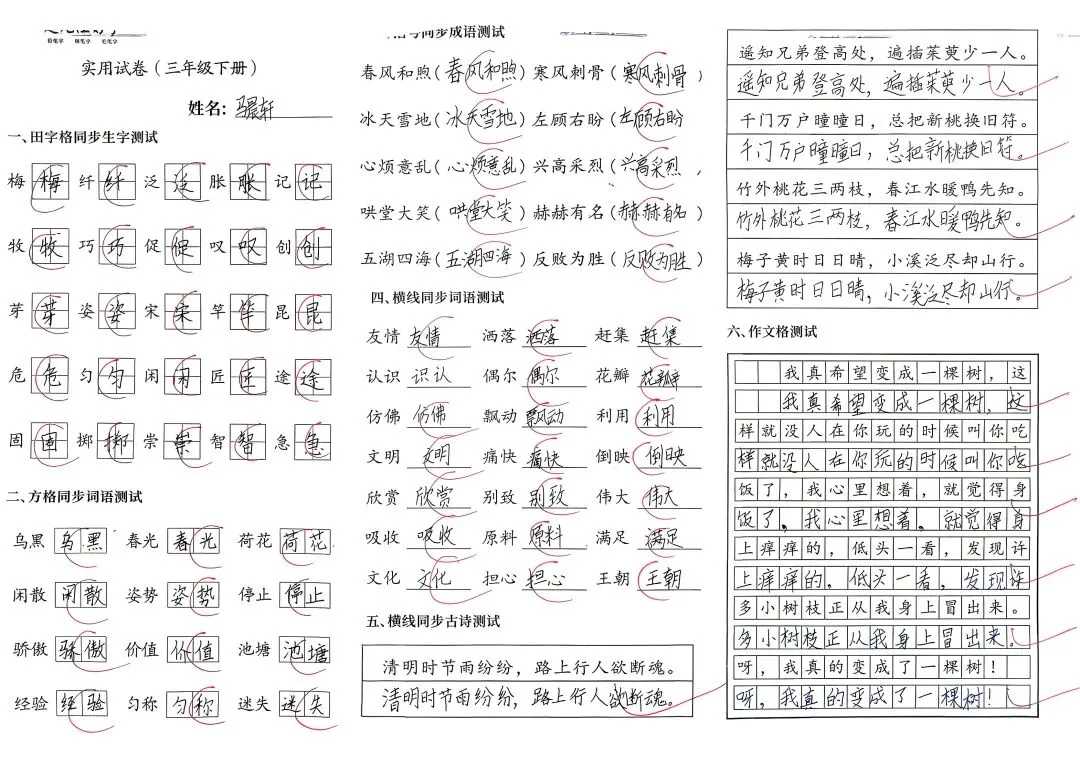 铅笔字 钢笔字 毛笔字
实用试卷（三年级下册）
姓名：骣轩
一、田字格同步生字测试
梅 梅 纤 纤 泛 泛 胀 胀 记 记
牧 牧 巧 巧 促 促 叹 叹 创 创
芽 芽 姿 姿 宋 宋 竿 竿 昆 昆
危 危 匀 匀 闲 闲 匠 匠 途 途
固 固 掷 掷 崇 崇 智 智 急 急
二、方格同步词语测试
乌黑 乌黑 春光 春光 荷花 荷花
闲散 闲散 姿势 姿势 停止 停止
骄傲 骄傲 价值 价值 池塘 池塘
经验 经验 匀称 匀称 迷失 迷失
同步成语测试
春风和煦（春风和煦）寒风刺骨（寒风刺骨）
冰天雪地（冰天雪地）左顾右盼（左顾右盼
心烦意乱（心烦意乱）兴高采烈（兴高采烈）
哄堂大笑（哄堂大笑）赫赫有名（赫赫有名）
五湖四海（五湖四海）反败为胜（反败为胜）
四、横线同步词语测试
友情 友情 洒落 洒落 赶集 赶集
认识 识认 偶尔 偶尔 花瓣 花瓣
仿佛 仿佛 飘动 飘动 利用 利用
文明 文明 痛快 痛快 倒映 倒映
欣赏 欣赏 别致 别致 伟大 伟大
吸收 吸收 原料 原料 满足 满足
文化 文化 担心 担心 王朝 王朝
五、横线同步古诗测试
清明时节雨纷纷，路上行人欲断魂。
清明时节雨纷纷，路上行人欲断魂。
遥知兄弟登高处，遍插茱萸少一人。
遥知兄弟登高处，遍插茱萸少一人。
千门万户曈曈日，总把新桃换旧符。
千门万户曈曈日，总把新桃换旧符。
竹外桃花三两枝，春江水暖鸭先知。
竹外桃花三两枝，春江水暖鸭先知。
梅子黄时日日晴，小溪泛尽却山行。
梅子黄时日日晴，小溪泛尽却山行。
六、作文格测试
我真希望变成一棵树，这
我真希望变成一棵树，这
样就没人在你玩的时候叫你吃
样就没人在你玩的时候叫你吃
饭了，我心里想着，就觉得身
饭了。我心里想着。就觉得身
上痒痒的，低头一看，发现许
上痒痒的，低头一看，发现许
多小树枝正从我身上冒出来。
多小树枝正从我身上冒出来。
呀，我真的变成了一棵树！
呀，我真的变成了一棵树！